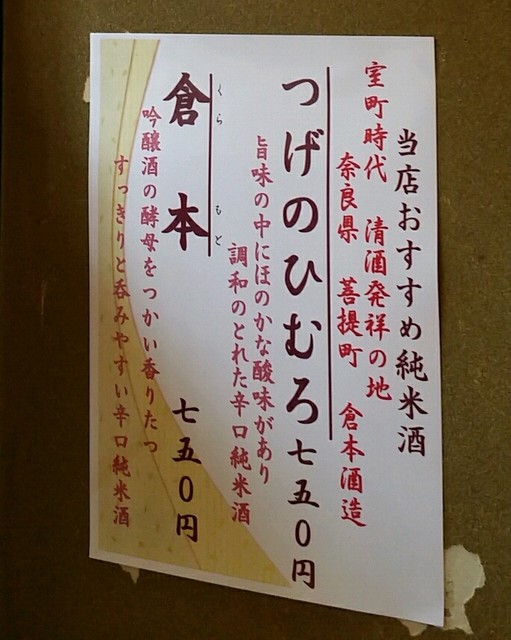 当店おすすめ純米酒
室町時代 清酒発祥の地
奈良県 菩提町 倉本酒造
つげのひむろ 七五０円
旨味の中にほのかな酸味があり
調和のとれた辛口純米酒
くら もと
倉本 七五０円
吟醸酒の酵母をつかい香りたつ
すっきりと呑みやすい辛口純米酒